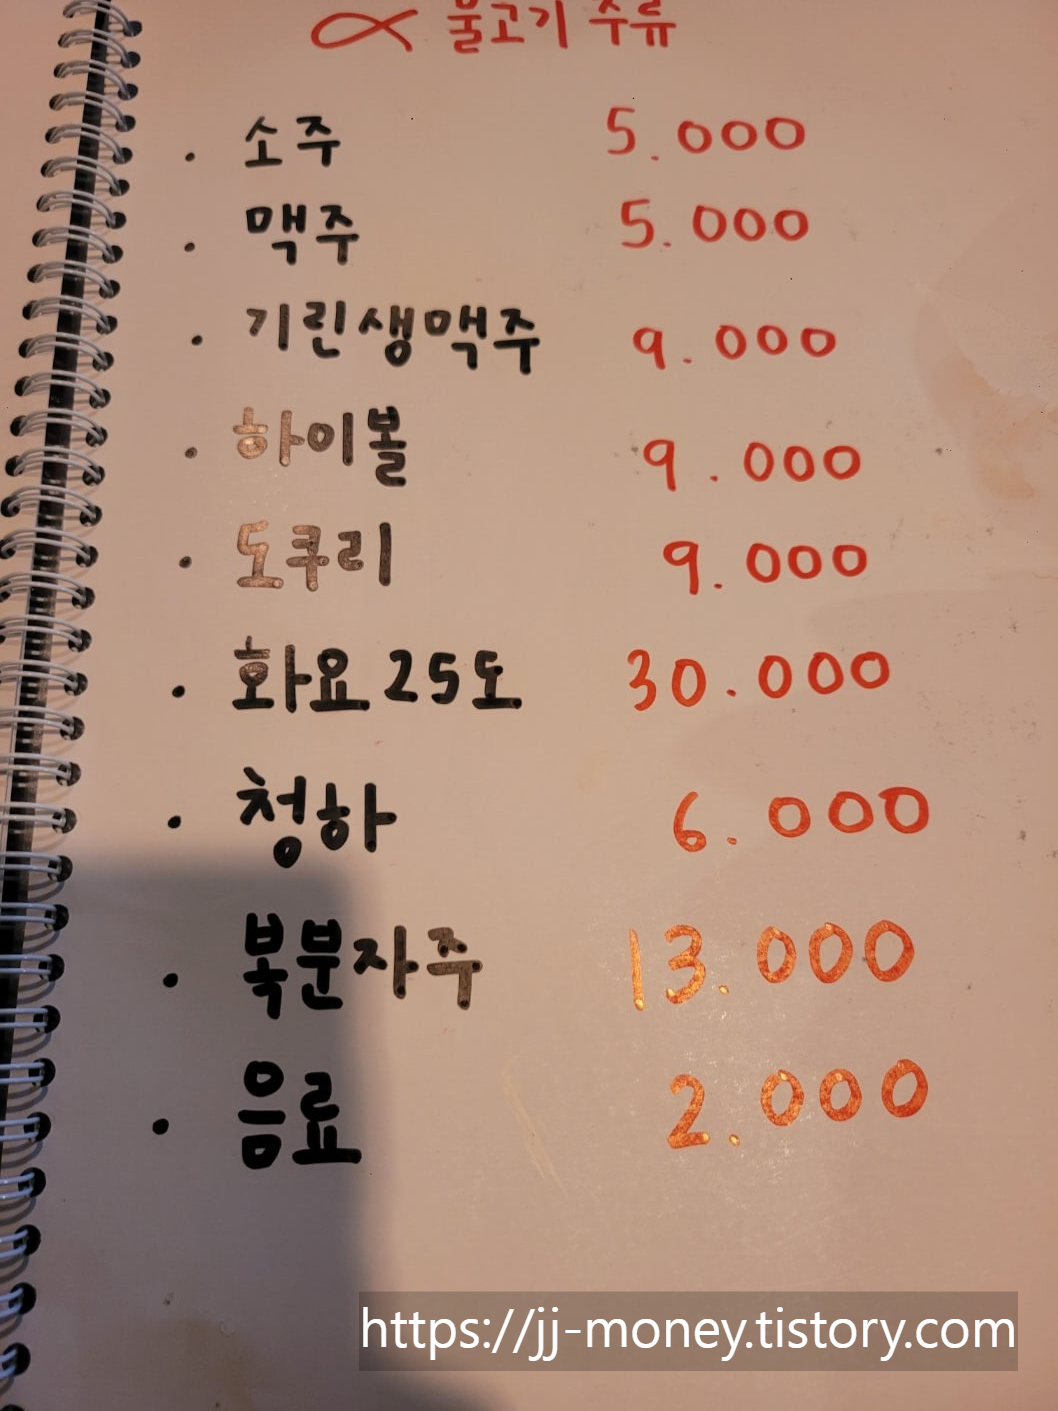 물고기 주류
· 소주 5.000
· 맥주 5.000
· 기린생맥주 9.000
· 하이볼 9.000
· 도쿠리 9.000
· 화요 25도 30.000
· 청하 6.000
· 복분자주 13.000
· 음료 2.000
https://jj-money.tistory.com